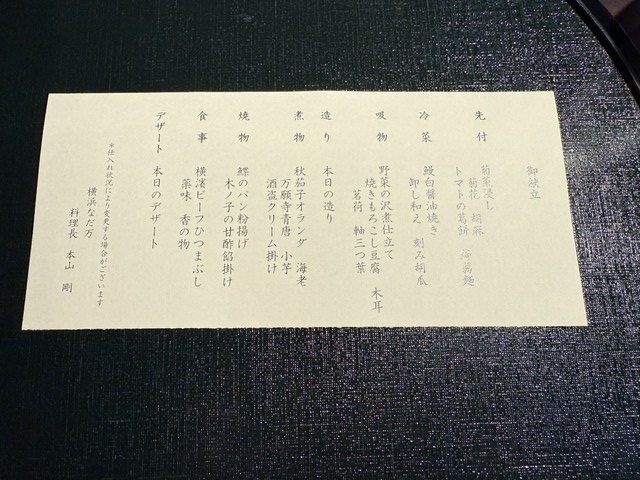 御献立
先付 菊菜浸し
菊花 胡麻
トマトの葛餅 蒟蒻麺
冷菜 鰻白醤油焼き
卸し和え 刻み胡瓜
吸物 野菜の沢煮仕立て
焼きもろこし豆腐 木耳
茗荷 軸三つ葉
造り 本日の造り
煮物 秋茄子オランダ 海老
万願寺青唐 小芋
酒盗クリーム掛け
焼物 鰈のパン粉揚げ
木ノ子の甘酢餡掛け
食事 横濱ビーフひつまぶし
薬味 香の物
デザート 本日のデザート
※仕入れ状況により変更する場合がございます
横浜なだ万
料理長 本山 剛